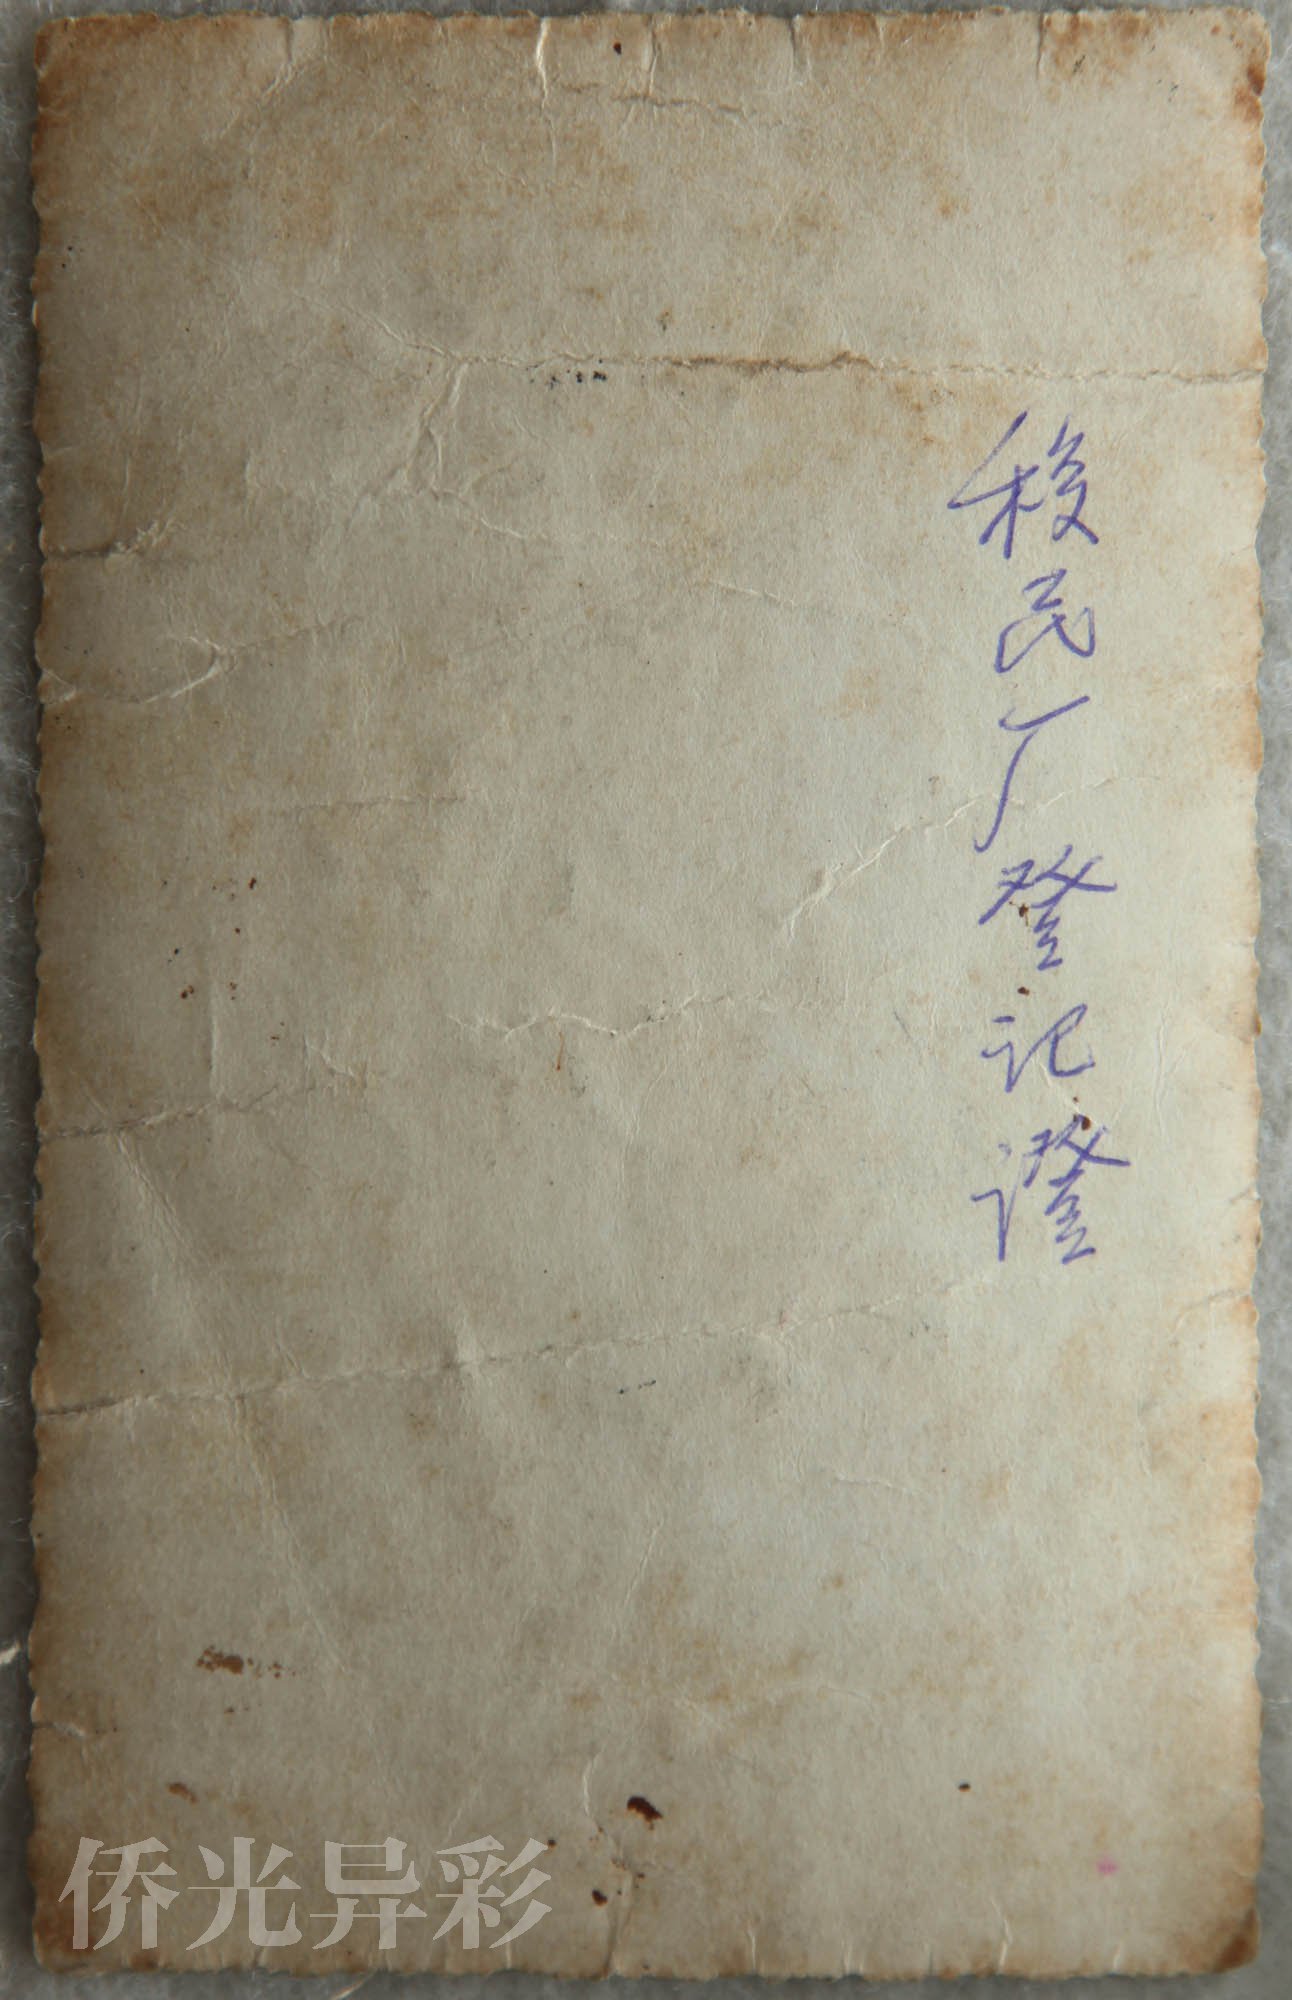 移民厂登记證
侨光异彩